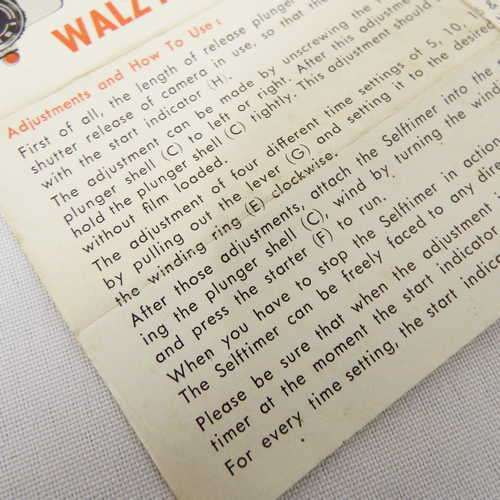 WALZ
Adjustments and How To Use :
First of all, the length of release plunger
shutter release of camera in use, so that the
with the start indicator (H).
The adjustment can be made by unscrewing the
plunger shell (C) to left or right. After this adjustment
hold the plunger shell (C) tightly. This adjustment should
without film loaded.
The adjustment of four different time settings of 5, 10,
by pulling out the lever (G) and setting it to the desired
the winding ring (E) clockwise.
After those adjustments, attach the Selftimer into the
ing the plunger shell (C), wind by turning the wind
and press the starter (F) to run.
When you have to stop the Selftimer in action
The Selftimer can be freely faced to any dire
Please be sure that when the adjustment
timer at the moment the start indicator
For every time setting, the start indica